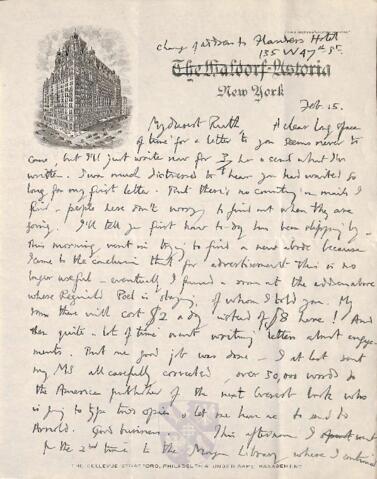 change of address to Flanders Hotel
135 W 47th St.
The Waldorf-Astoria
New York
Feb 15.
My dearest Ruth A clear long space
of time for a letter to you seems never to
come, but I'll just write now for I
written. I was much distressed to hear you had waited so
long for my first letter. But there's no counting on mails I
find - people here don't worry to find out when they are
going. I'll tell you first how to-day has been slipping by -
this morning went in trying to find a new abode because
I came to the conclusion that for advertisement this is no
longer useful - eventually I found a room at the address above
where Reginald Poel is staying, of whom I told you. My
room there will cost $2 a day instead of $8 here! And
then quite a lot of time went writing letters about engage-
ments. But one good job was done - I at last sent
my MS all carefully corrected, over 30,000 words to
the American publisher of the next Everest book who
is going to type two copies & let me have one to send to
Arnold. Good business. This afternoon I spent went
for the 2nd time to the Morgan Library where I continued
THE BELLEVUE STRATFORD, PHILADELPHIA UNDER SAME MANAGEMENT